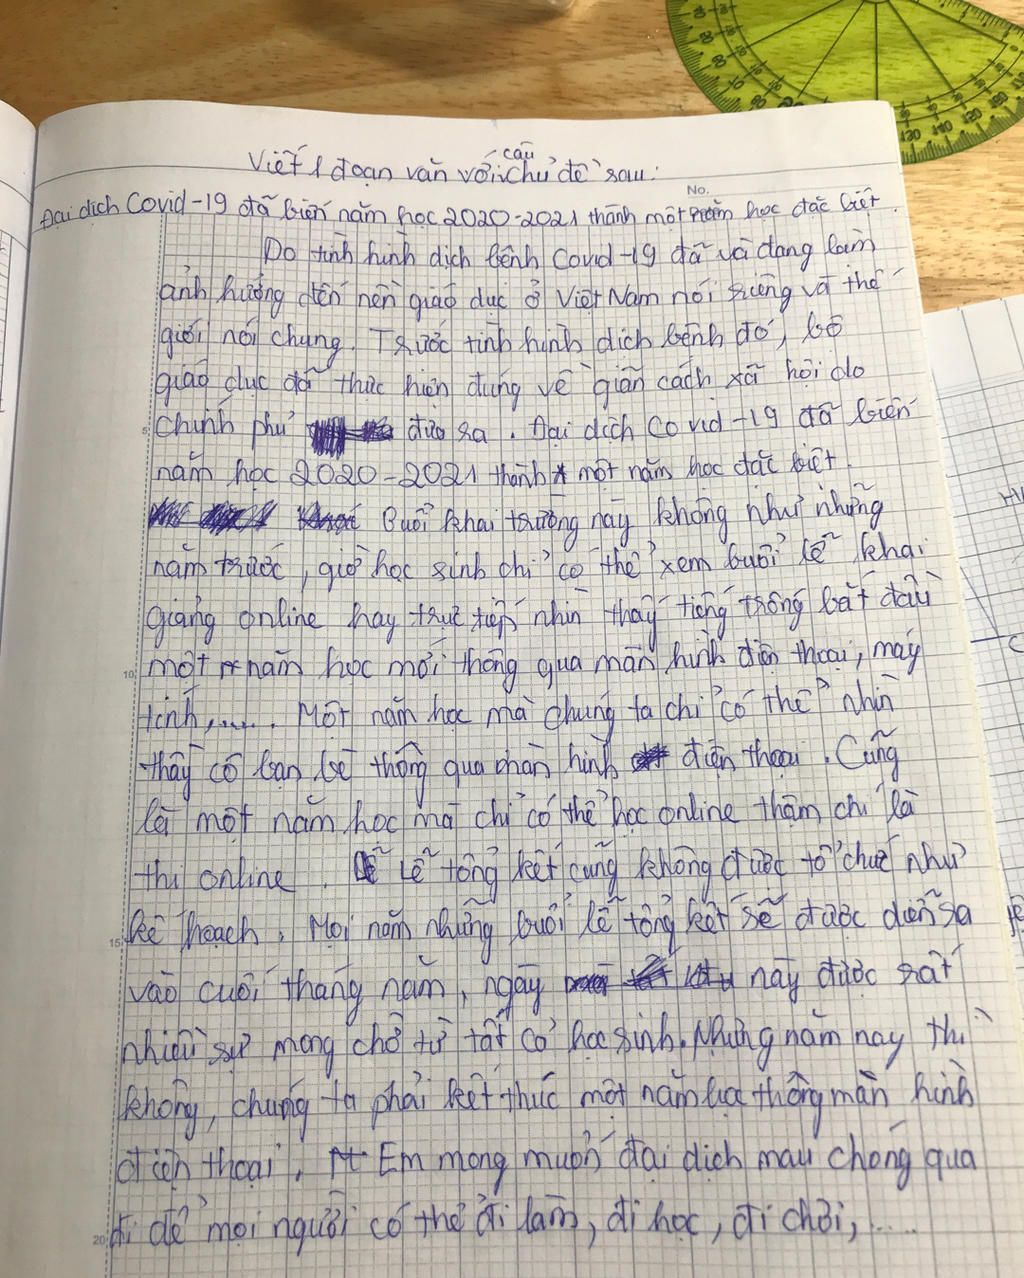 Viết 1 đoạn văn với câu chủ đề sau:
No.
Đại dịch Covid-19 đã biến năm học 2020-2021 thành một năm học đặc biệt.
Do tình hình dịch bệnh Covid-19 đã và đang làm
ảnh hưởng đến nền giáo dục ở Việt Nam nói riêng và thế
giới nói chung. Trước tình hình dịch bệnh đó, bộ
giáo dục đã thực hiện đúng về giãn cách xã hội do
5
chính phủ đưa ra. Đại dịch Covid-19 đã biến
năm học 2020-2021 thành một năm học đặc biệt.
Buổi khai trường này không như những
năm trước, giờ học sinh chỉ có thể xem buổi lễ khai
giảng online hay trực tiếp nhìn thấy tiếng trống bắt đầu
10
một năm học mới thông qua màn hình điện thoại, máy
tính,..... Một năm học mà chúng ta chỉ có thể nhìn
thấy cô bạn bè thông qua màn hình điện thoại. Cũng
là một năm học mà chỉ có thể học online thậm chí là
thi online. Lễ tổng kết cũng không được tổ chức như
15
kế hoạch. Mọi năm những buổi lễ tổng kết sẽ được diễn ra
vào cuối tháng năm, ngày này được rất
nhiều sự mong chờ từ tất cả học sinh. Nhưng năm nay thì
không, chúng ta phải kết thúc một năm học thông màn hình
điện thoại. Em mong muốn đại dịch mau chóng qua
20
đi để mọi người có thể đi làm, đi học, đi chơi,.....